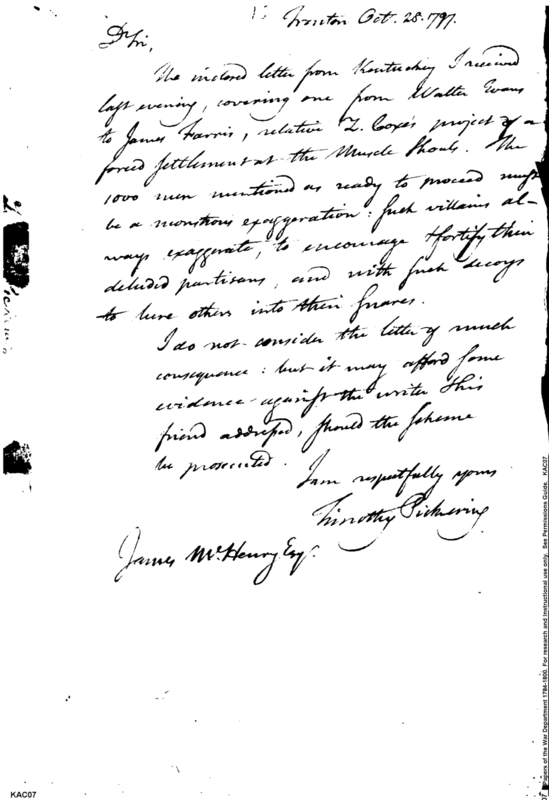 Trenton Oct. 28. 1797.
Dr Sir,
The inclosed letter from Kentuckey I received
last evening, covering one from Walter Evans
to James Farris, relative Z. Coxe's project of a
forced settlement at the Muscle Shoals. The
1000 men mentioned as ready to proceed must
be a monstrous exaggeration: such villains al-
ways exaggerate, to encourage & fortify their
deluded partisans, and with such decoys
to lure others into their snares.
I do not consider the letter of much
consequence: but it may afford some
evidence against the writer & his
friend addressed, should the scheme
be prosecuted.
I am respectfully yours
Timothy Pickering
James McHenry Esqr.
KAC07
Papers of the War Department 1784-1800. For research and instructional use only. See Permissions Guide. KAC07